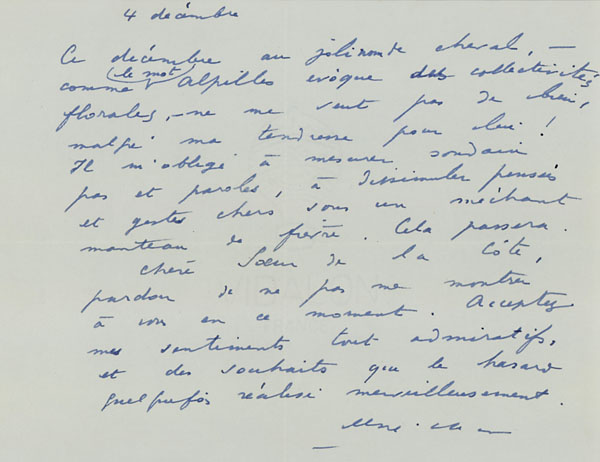 4 décembre
Ce décembre au joli nom de cheval, —
comme le mot Alpilles évoque des collectivités
florales, — ne me veut pas de bien,
malgré ma tendresse pour lui !
Il m'oblige à mesurer soudain
pas et paroles, à dissimuler pensées
et gestes chers sous un méchant
manteau de fièvre. Cela passera.
Chère Sœur de la Côte,
pardon de ne pas me montrer
à vous en ce moment. Acceptez
mes sentiments tout admiratifs,
et des souhaits que le hasard
quelquefois réalise merveilleusement.